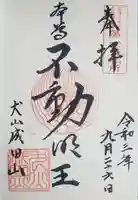 奉拝
本尊
不動明王
犬山成田山
令和三年
九月二十六日